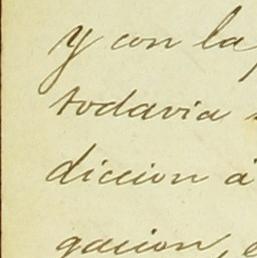 y con la
todavia
diccion á
gacion,